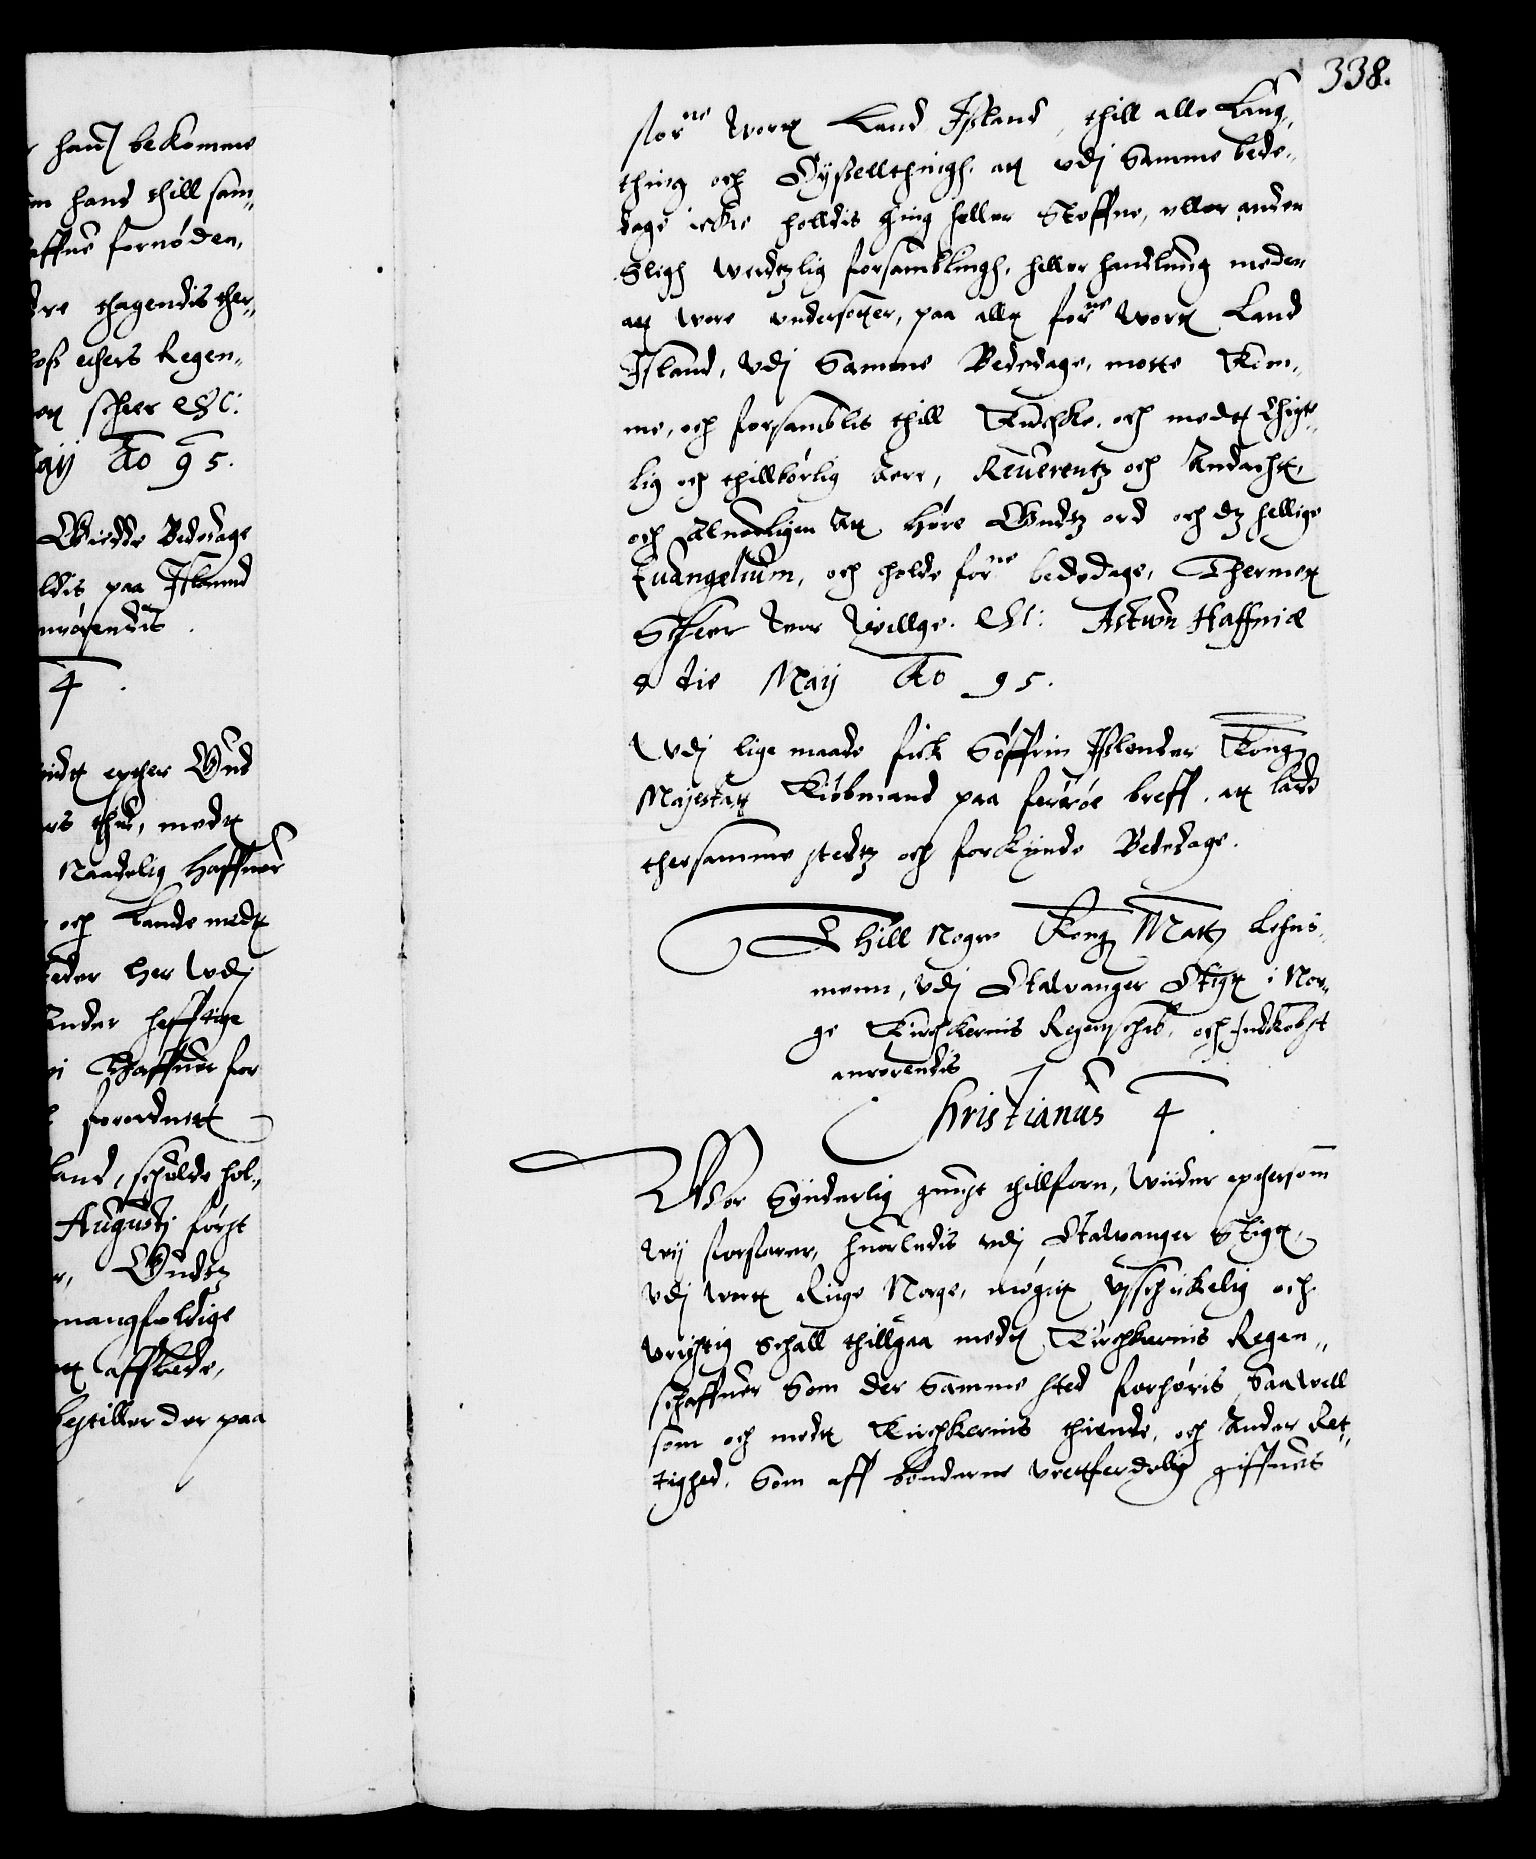 338.
hanß bekomme
hand thill sam¬
affne fornøden,
thagendis ther¬
echers Regen¬
scheer etc:
Maij Ao 95.
Giede Bededage
paa Island
anrørendis.
4.
epther Gud
thid, medtt
Naadelig haffuer
och Lande medtt
her vdj
Ander hefftige
haffuer for
forordnett
land, schulde hol¬
Augustj først
Gudtz
mangfoldige
affbede,
bestiller der paa
forne wortt Land Ißland, thill alle Lang¬
thing och Syßellthingh, att vdj Samme bede¬
dage icke holldis ting heller Steffne, eller anden
Sligh werdtzlig forsamblingh, heller handlung meden
att wore vndersotter, paa altt forne wortt Land
Island, vdj Samme Bededage, motte Kom¬
me, och forsamblis thill Kirchke, och medtt thigt¬
lig och thillbørlig Aere, Reuerentz och Andachtt,
och aluorligen att høre Gudtz ord och dz hellige
Euangelium, och holde forne bededage, Thermett
Scheer wor willge. etc: Actum Haffniæ
9 die Maij Ao 95.
Vdj lige maade fick Søffrin Islender Kong:
Majestatt Kiøbmand paa ferrøe breff, att lade
thersamme stedtz och forkynde Bededage.
Thill Nogre Kong: Mattz Lehns¬
menn, vdj Stawanger Stigtt i Nor¬
ge Kirchkernis Regenschab, och indkobst
anrørendis
Christianus 4.
Wor Synderlig gunst thillforn, Wiider epthersom
wij forfarer, huorledis vdj Stawanger Stigtt,
vdj wortt Riige Norge, nøgett vschickelig och
vrichtig Schall thillgaa medtt Kirchkernis Regen¬
schaffuer Som der Samme sted forhøris, Saawell
som och medtt Kirchkernis thiende, och Ander Ret¬
tighed, Som aff bønderne vrettferdelig giffues